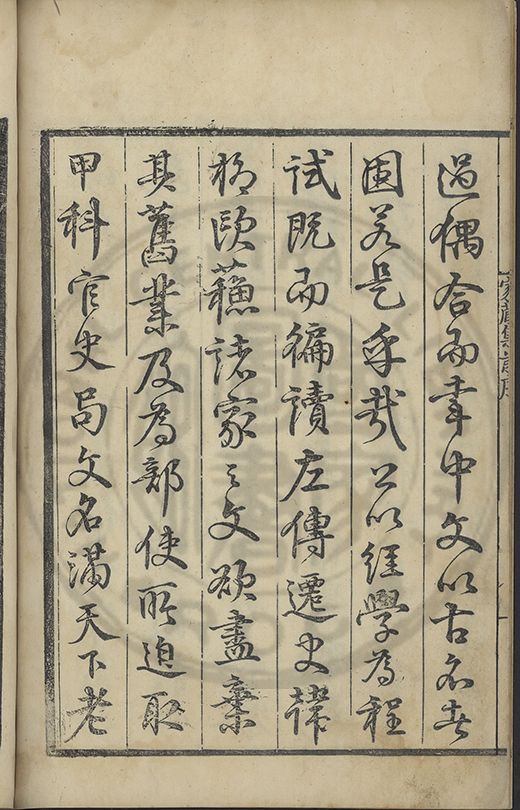 過偶合而幸中文以古名者
固若是乎哉公以經學為程
試既而徧讀左傳遷史韓
柳歐蘇諸家之文欲盡棄
其舊業及為部使所迫取
甲科官史局文名滿天下老